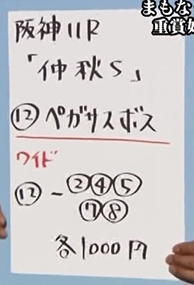 まもな
重賞
阪神11R
「仲秋S」
⑫ペガサスボス
ワイド
⑫-②④⑤
⑦⑧
各1000円